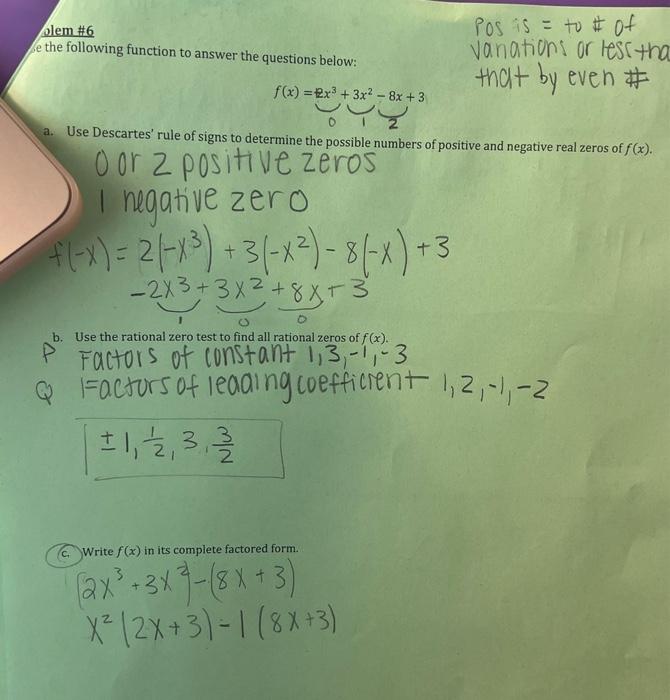 olem #6
e the following function to answer the questions below:
Pos is = to # of
variations or less tha
that by even #
f(x) = 2x³ + 3x² − 8x + 3
0 1 2
a. Use Descartes' rule of signs to determine the possible numbers of positive and negative real zeros of f(x).
0 or 2 positive zeros
1 negative zero
f(-x) = 2(-x³) + 3(-x²) - 8(-x) + 3
-2x3 + 3x2 + 8x + 3
1 0 0
b. Use the rational zero test to find all rational zeros of f(x).
P Factors of constant 1, 3, -1, -3
Q Factors of leading coefficient 1, 2, -1, -2
± 1, 1/2, 3, 3/2
c. Write f(x) in its complete factored form.
(2x³ + 3x²) - (8x + 3)
x² (2x + 3) - 1 (8x + 3)